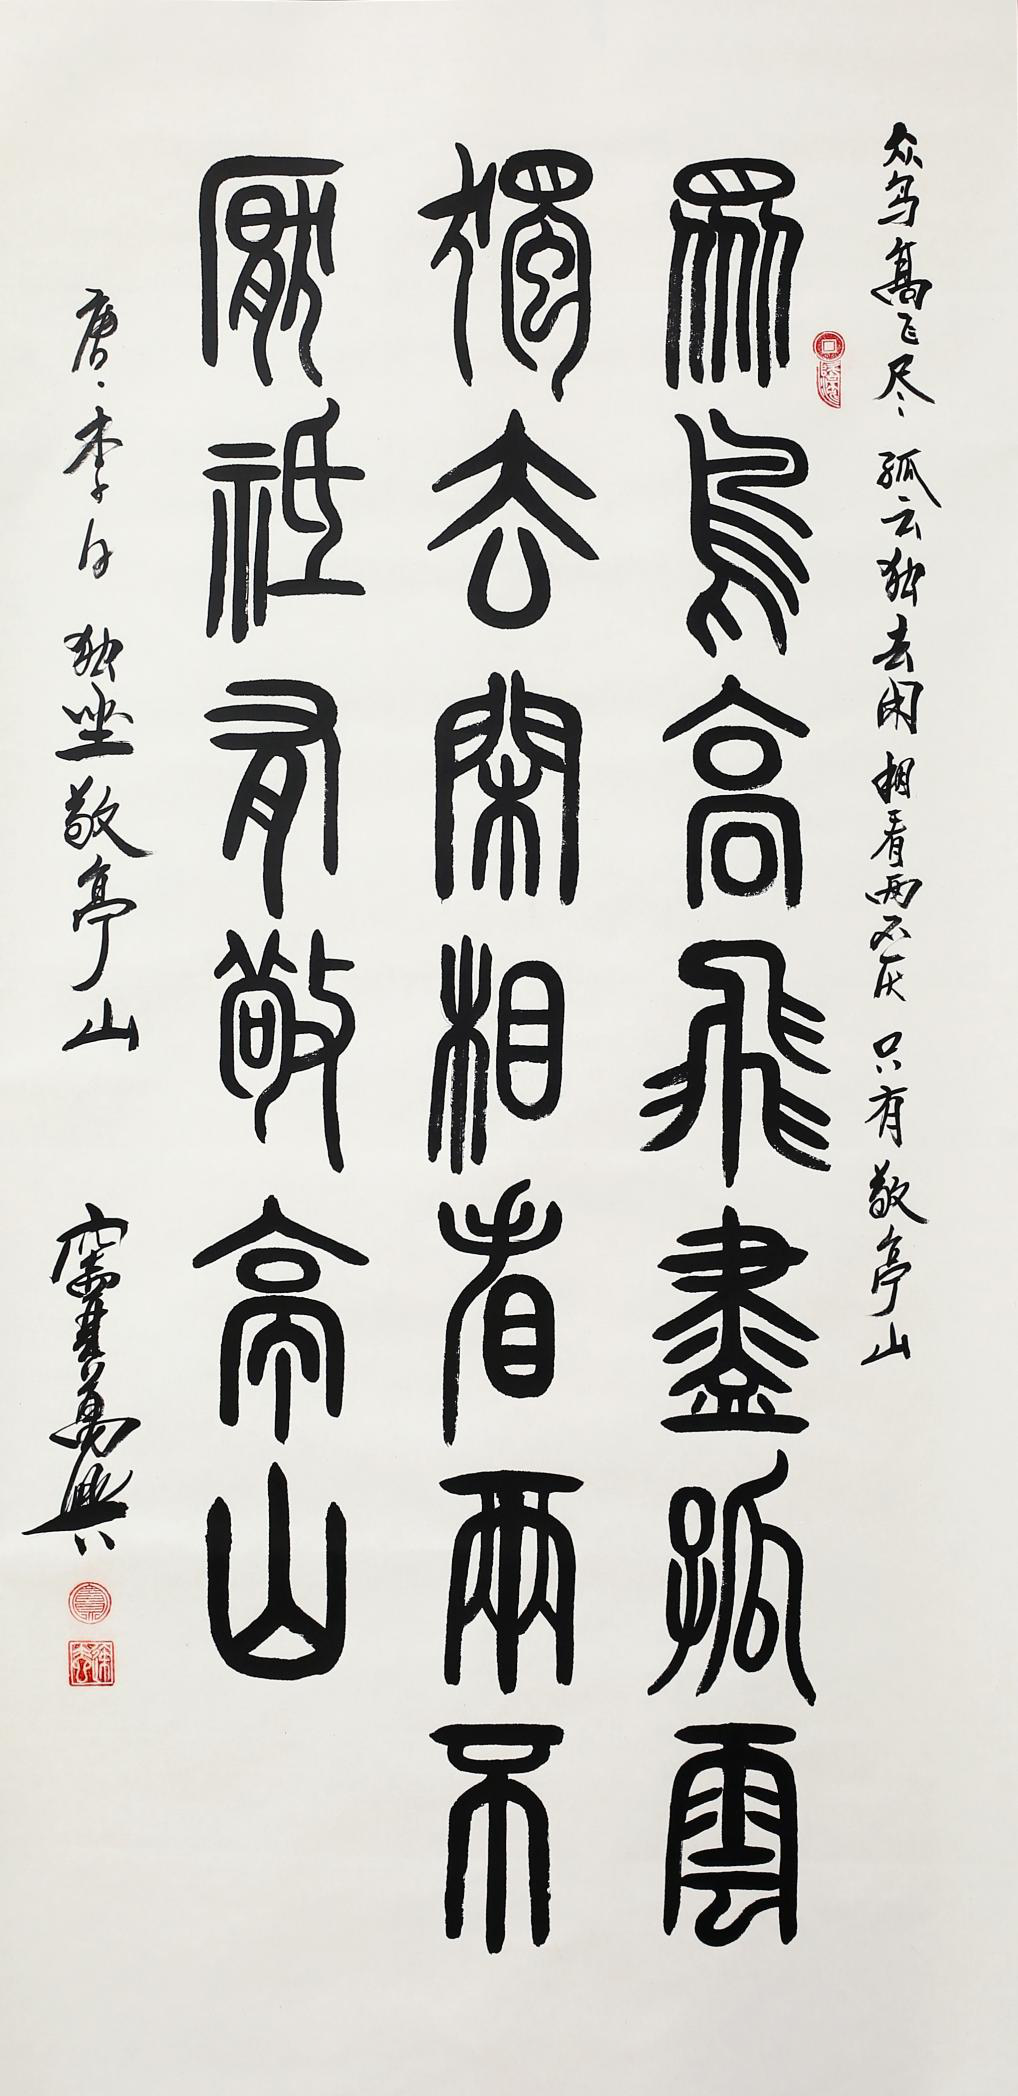 众鸟高飞尽 孤云独去闲 相看两不厌 只有敬亭山
眾鳥高飛盡孤雲
獨去閑相看兩不
厭祇有敬亭山
唐 李白 独坐敬亭山